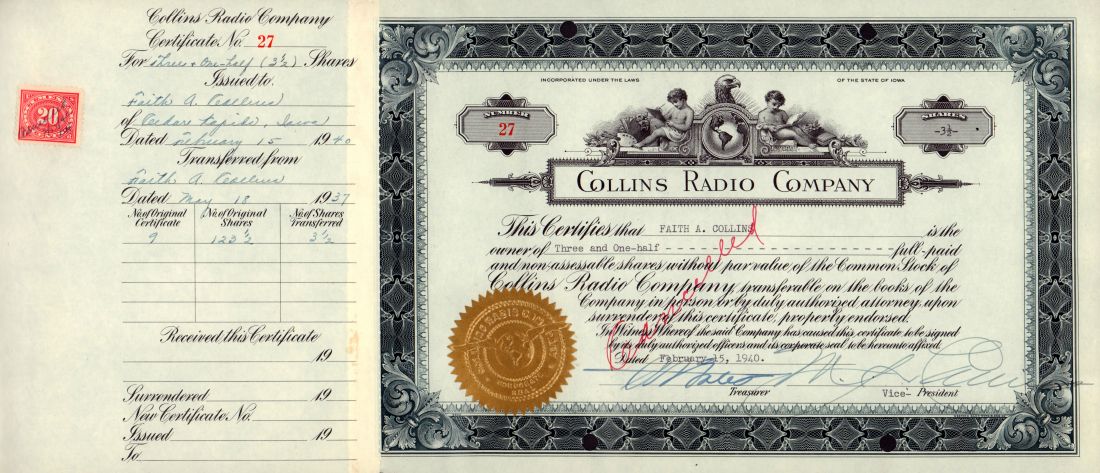 Collins Radio Company
Certificate No. 27
For three & one-half (3½) Shares
Issued to
Faith A. Collins
of Cedar Rapids, Iowa
Dated February 15 1940
Transferred from
Faith A. Collins
Dated May 18 1937
No. of Original Certificate
No. of Original Shares
No. of Shares Transferred
9 123½ 3½
Received this Certificate
19
Surrendered 19
New Certificate No.
Issued 19
To
20
INCORPORATED UNDER THE LAWS OF THE STATE OF IOWA
NUMBER
27
SHARES
-3½-
COLLINS RADIO COMPANY
This Certifies that FAITH A. COLLINS is the
owner of Three and One-half - - - - - - - - - - - - - - - - full-paid
and non-assessable shares without par value of the Common Stock of
Collins Radio Company transferable on the books of the
Company in person or by duly authorized attorney upon
surrender of this certificate, properly endorsed.
In Witness Whereof the said Company has caused this certificate to be signed
by its duly authorized officers and its corporate seal to be hereunto affixed.
Dated February 15, 1940.
Cancelled
Treasurer
Vice- President